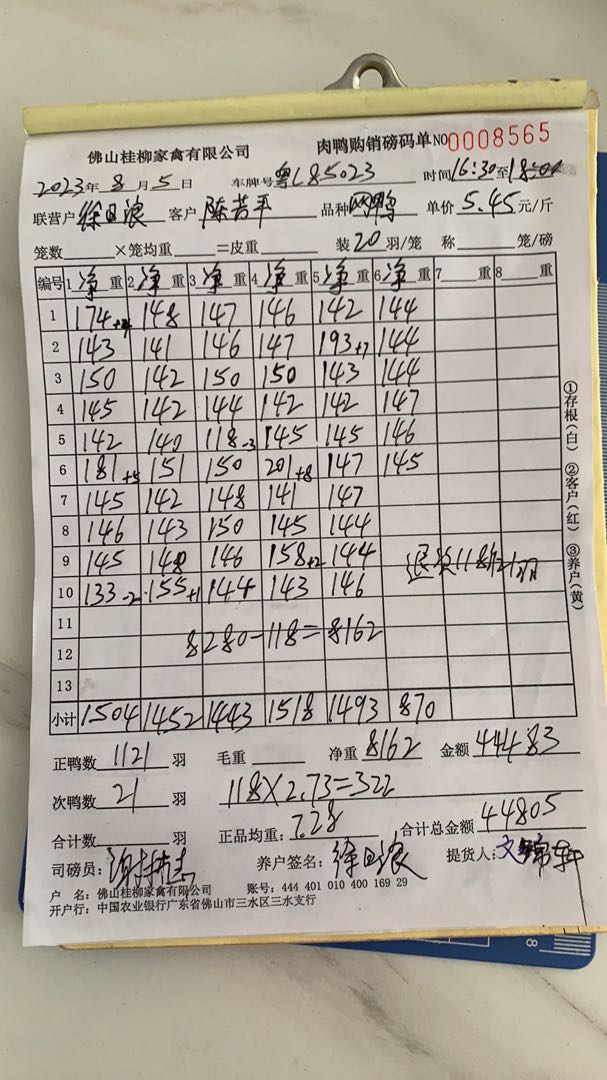 佛山桂柳家禽有限公司 肉鸭购销磅码单 NO 0008565
2023年8月5日 车牌号 粤L85023 时间16:30至18:00
联营户 徐日浪 客户 陈芳平 品种 肉鸭 单价 5.45元/斤
笼数 ×笼均重 =皮重 装20羽/笼 称 笼/磅
编号 1 净重 2 净重 3 净重 4 净重 5 净重 6 净重 7 重 8 重
1 174 148 147 146 142 144
2 143 141 146 147 193+7 144
3 150 142 150 150 143 144
4 145 142 144 142 142 147
5 142 140 118-3 145 145 146
6 181+5 151 150 201+8 147 145
7 145 142 148 141 147
8 146 143 150 145 144
9 145 148 146 158+2 144 118斤21羽
10 133-2 155+1 144 143 146
11
8280-118=8162
12
13
小计 1504 1452 1443 1518 1493 870
正鸭数 1121 羽 毛重 净重 8162 金额 44483
次鸭数 21 羽 118×2.73=322
合计数 羽 正品均重: 7.28 合计总金额 44805
司磅员: 养户签名: 徐日浪 提货人:
户 名: 佛山桂柳家禽有限公司 账号: 444 401 010 400 169 29
开户行: 中国农业银行广东省佛山市三水区三水支行
①存根(白) ②客户(红) ③养户(黄)
8